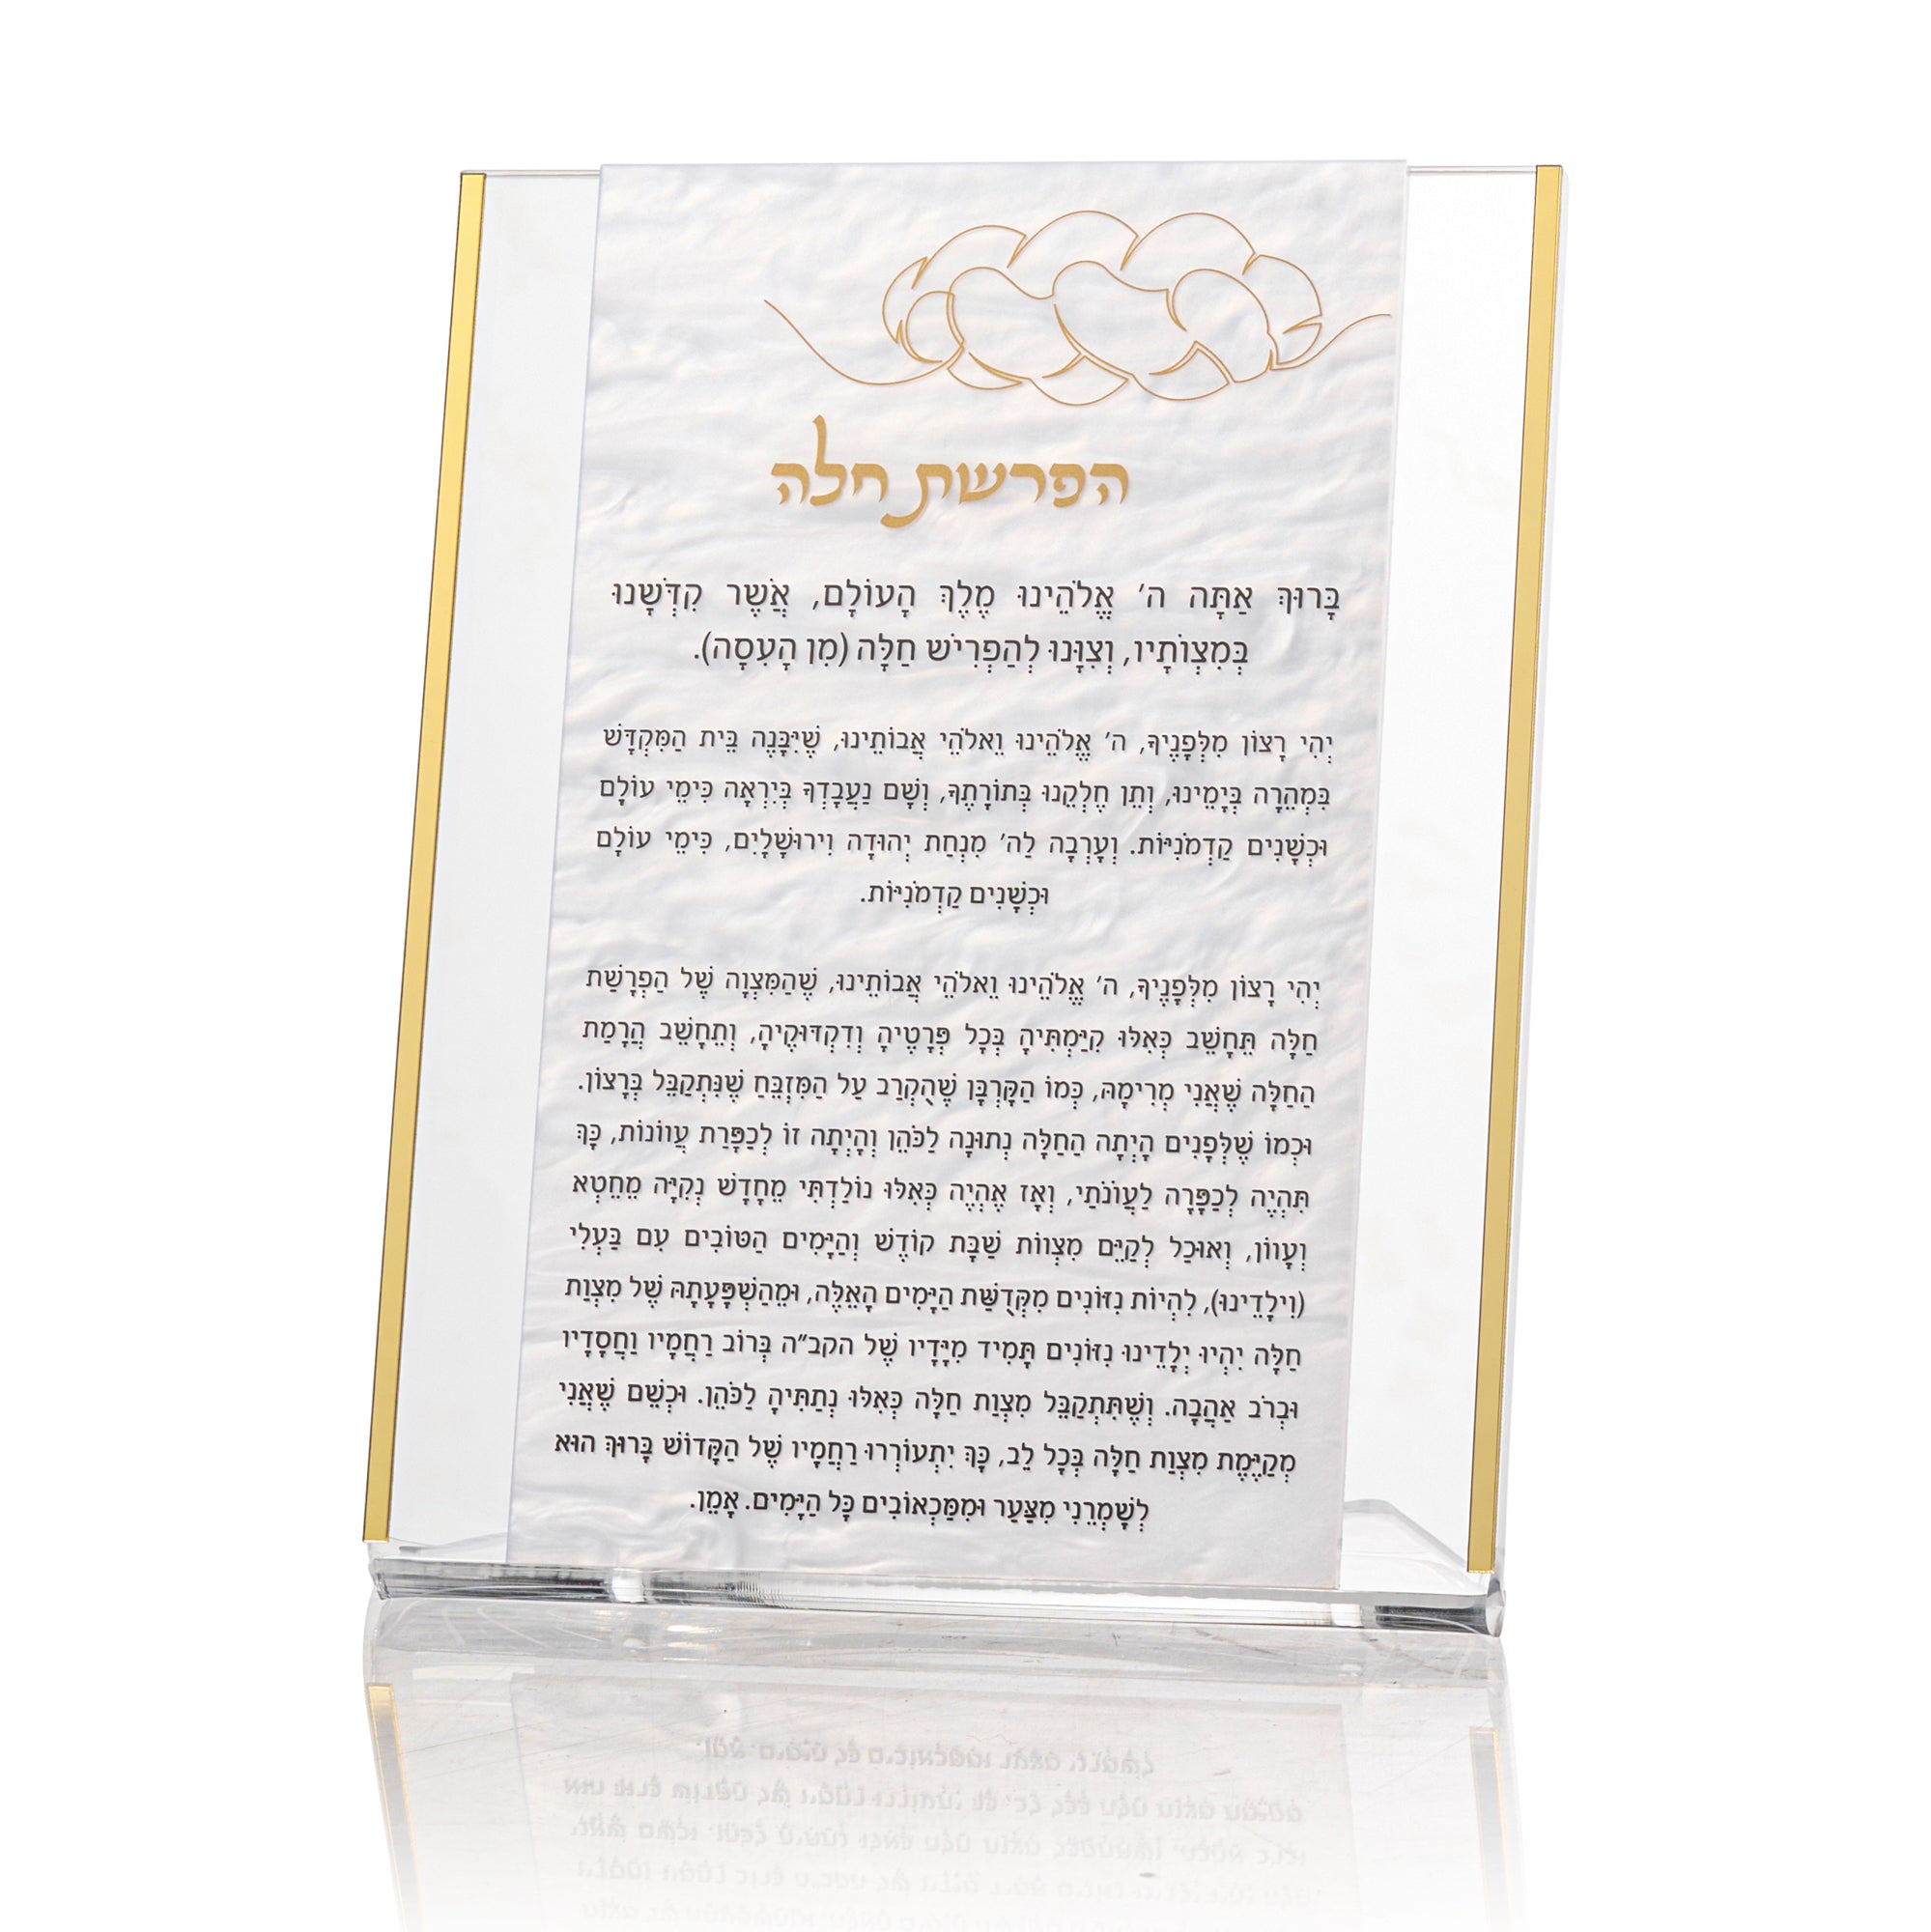 הפרשת חלה
בָּרוּךְ אַתָּה ה' אֱלֹהֵינוּ מֶלֶךְ הָעוֹלָם, אֲשֶׁר קִדְּשָׁנוּ
בְּמִצְוֹתָיו, וְצִוָּנוּ לְהַפְרִישׁ חַלָּה (מִן הָעִסָה).
יְהִי רָצוֹן מִלְּפָנֶיךָ, ה' אֱלֹהֵינוּ וֵאלֹהֵי אֲבוֹתֵינוּ, שֶׁיִּבָּנֶה בֵּית הַמִּקְדָּשׁ
בִּמְהֵרָה בְּיָמֵינוּ, וְתֵן חֶלְקֵנוּ בְּתוֹרָתֶךָ, וְשָׁם נַעֲבָדְךָ בְּיִרְאָה כִּימֵי עוֹלָם
וּכְשָׁנִים קַדְמֹנִיּוֹת. וְעָרְבָה לַה' מִנְחַת יְהוּדָה וִירוּשָׁלָיִם, כִּימֵי עוֹלָם
וּכְשָׁנִים קַדְמֹנִיּוֹת.
יְהִי רָצוֹן מִלְּפָנֶיךָ, ה' אֱלֹהֵינוּ וֵאלֹהֵי אֲבוֹתֵינוּ, שֶׁהַמִּצְוָה שֶׁל הַפְרָשַׁת
חַלָּה תֵּחָשֵׁב כְּאִלּוּ קִיַּמְתִּיהָ בְּכָל פְּרָטֶיהָ וְדִקְדּוּקֶיהָ, וְתֵחָשֵׁב הֲרָמַת
הַחַלָּה שֶׁאֲנִי מְרִימָה, כְּמוֹ הַקָּרְבָּן שֶׁהֻקְרַב עַל הַמִּזְבֵּחַ שֶׁנִּתְקַבֵּל בְּרָצוֹן.
וּכְמוֹ שֶׁלְּפָנִים הָיְתָה הַחַלָּה נְתוּנָה לַכֹּהֵן וְהָיְתָה זוֹ לְכַפָּרַת עֲווֹנוֹת, כָּךְ
תִּהְיֶה לְכַפָּרָה לַעֲוֹנֹתַי, וְאָז אֶהְיֶה כְּאִלּוּ נוֹלַדְתִּי מֵחָדָשׁ נְקִיָּה מֵחֵטְא
וְעָווֹן, וְאוּכַל לְקַיֵּם מִצְווֹת שַׁבָּת קוֹדֶשׁ וְהַיָּמִים הַטּוֹבִים עִם בַּעְלִי
(וִילָדֵינוּ), לִהְיוֹת נִזּוֹנִים מִקְּדֻשַּׁת הַיָּמִים הָאֵלֶּה, וּמֵהַשְׁפָּעָתָהּ שֶׁל מִצְוַת
חַלָּה יִהְיוּ יְלָדֵינוּ נִזּוֹנִים תָּמִיד מִיָּדָיו שֶׁל הקב"ה בְּרוֹב רַחֲמָיו וַחֲסָדָיו
וּבְרֹב אַהֲבָה. וְשֶׁתִּתְקַבֵּל מִצְוַת חַלָּה כְּאִלּוּ נְתַתִּיהָ לַכֹּהֵן. וּכְשֵׁם שֶׁאֲנִי
מְקַיֶּמֶת מִצְוַת חַלָּה בְּכָל לֵב, כָּךְ יִתְעוֹרְרוּ רַחֲמָיו שֶׁל הַקָּדוֹשׁ בָּרוּךְ הוּא
לְשָׁמְרֵנִי מִצַּעַר וּמִמַּכְאוֹבִים כָּל הַיָּמִים. אָמֵן.